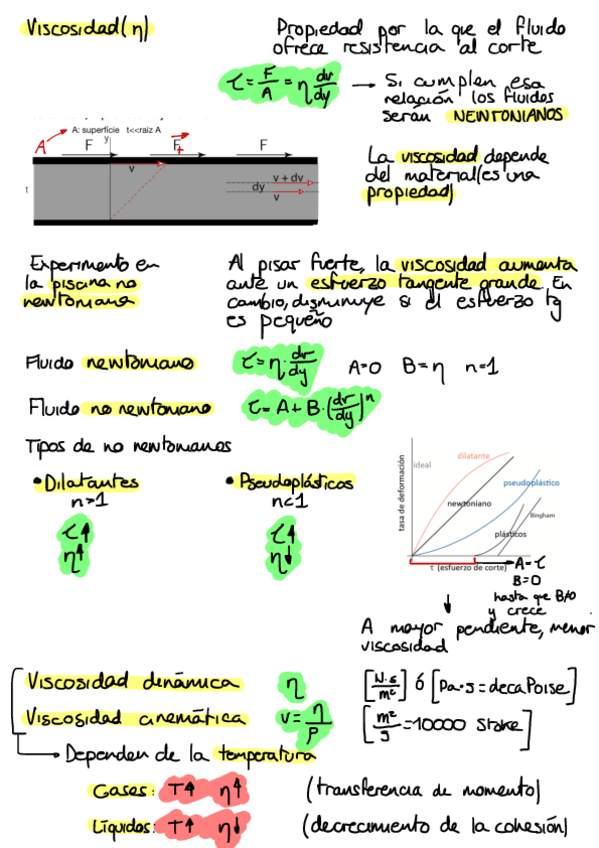 Viscosidad (η)
Propiedad por la que el fluido
ofrece resistencia al corte
τ = F/A = η dv/dy → Si cumplen esa
relación los fluidos
serán NEWTONIANOS
A
A: superficie t<<raiz A
y
F F F
t
v
v + dv
dy
v
La viscosidad depende
del material (es una
propiedad)
Experimento en
la piscina no
newtoniana
Al pisar fuerte, la viscosidad aumenta
ante un esfuerzo tangente grande. En
cambio, disminuye si el esfuerzo tg
es pequeño
Fluido newtoniano τ = η · dv/dy A=0 B=η n=1
Fluido no newtoniano τ = A + B · (dv/dy)^n
Tipos de no newtonianos
• Dilatantes
n>1
τ↑
η↑
• Pseudoplásticos
n<1
τ↑
η↓
tasa de deformación
ideal
dilatante
newtoniano
pseudoplástico
Bingham
plásticos
τ (esfuerzo de corte)
A=τ
B=0
hasta que B≠0
y crece
↓
A mayor pendiente, menor
viscosidad
Viscosidad dinámica η [N·s/m²] ó [Pa·s = decaPoise]
Viscosidad cinemática ν = η/ρ [m²/s = 10000 Stoke]
→ Dependen de la temperatura
Gases: T↑ η↑ (transferencia de momento)
Líquidos: T↑ η↓ (decrecimiento de la cohesión)